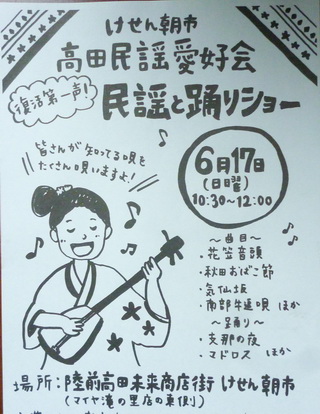 けせん朝市
高田民謡愛好会
復活第一声!
民謡と踊りショー
皆さんが知ってる唄を
たくさん唄いますよ!
6月17日
(日曜)
10:30〜12:00
〜曲目〜
・花笠音頭
・秋田おばこ節
・気仙坂
・南部牛追唄 ほか
〜踊り〜
・支那の夜
・マドロス ほか
場所:陸前高田未来商店街 けせん朝市
(マイヤ滝の里店の東側)